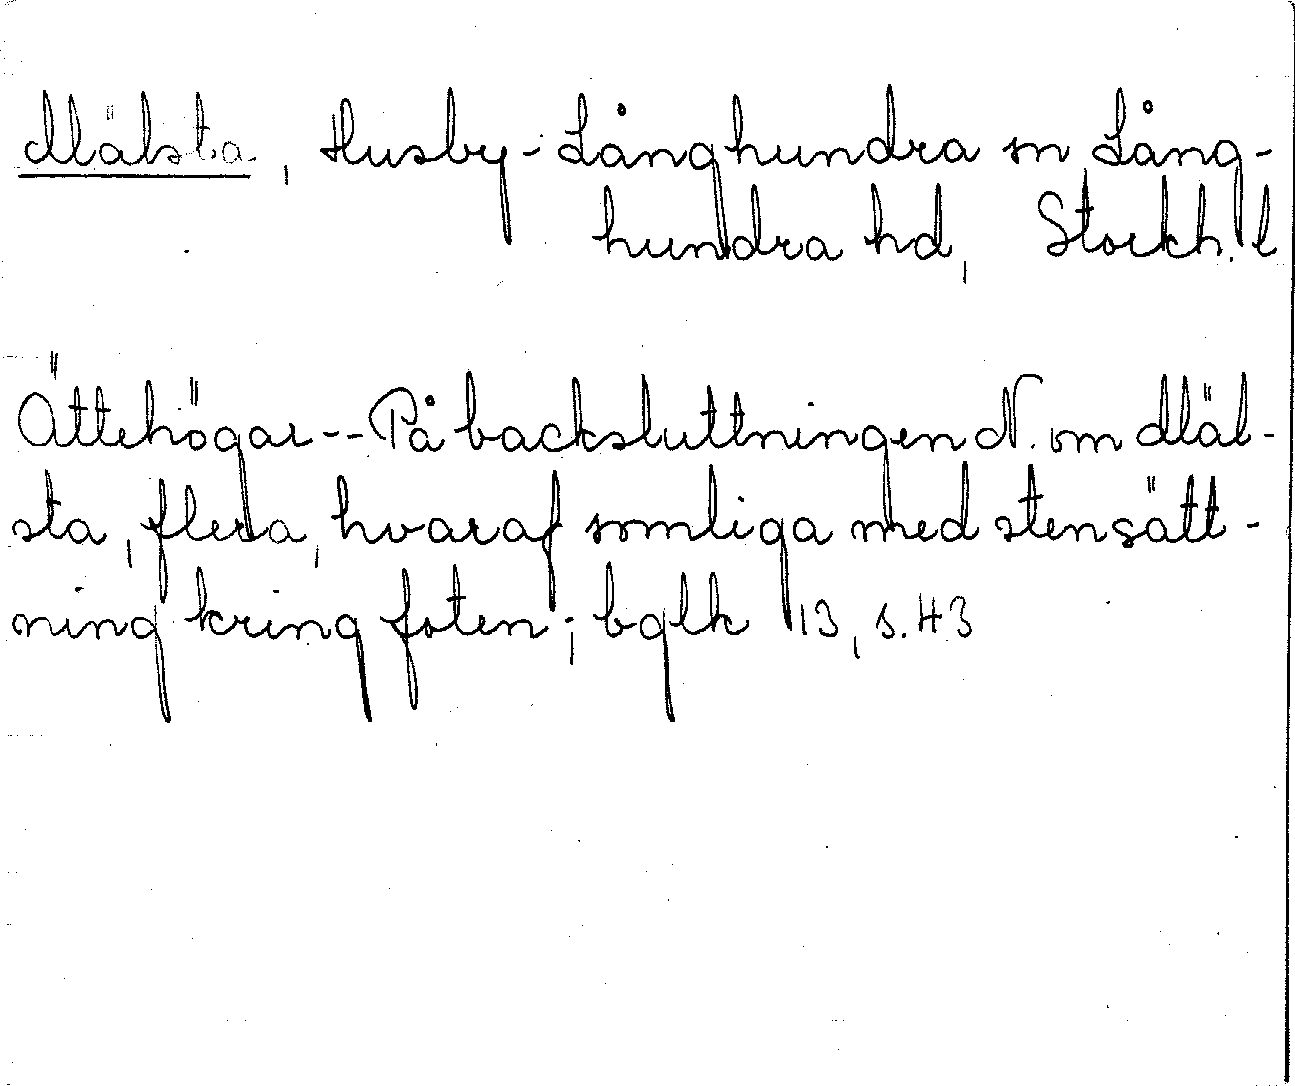 Mälsta, Husby-Långhundra sn Lång-
hundra hd, Stockh. l
Ättehögar--På backsluttningen N. om Mäl-
sta, flera, hvaraf somliga med stensätt-
ning kring foten; bglk 13, s. 43